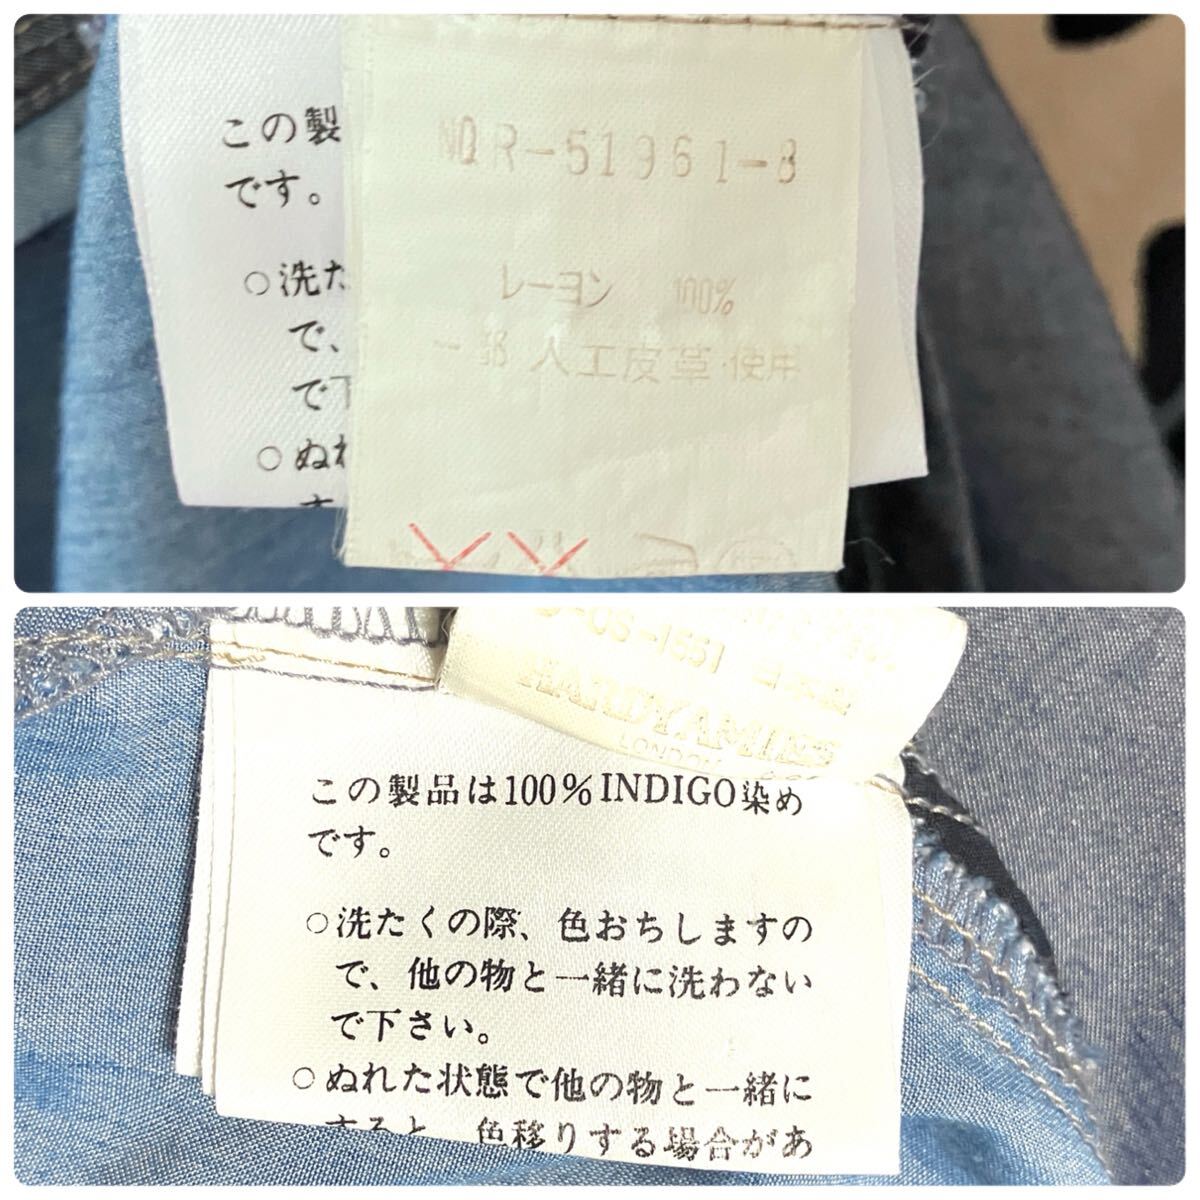 この製
です。
○洗た
で、
で下
○ぬれ
NO R-51961-8
レーヨン 100%
一部人工皮革使用
-CS-1551 日本製
HARDY AMIES
LONDON
この製品は100%INDIGO染め
です。
○洗たくの際、色おちしますの
で、他の物と一緒に洗わない
で下さい。
○ぬれた状態で他の物と一緒に
すると、色移りする場合があ